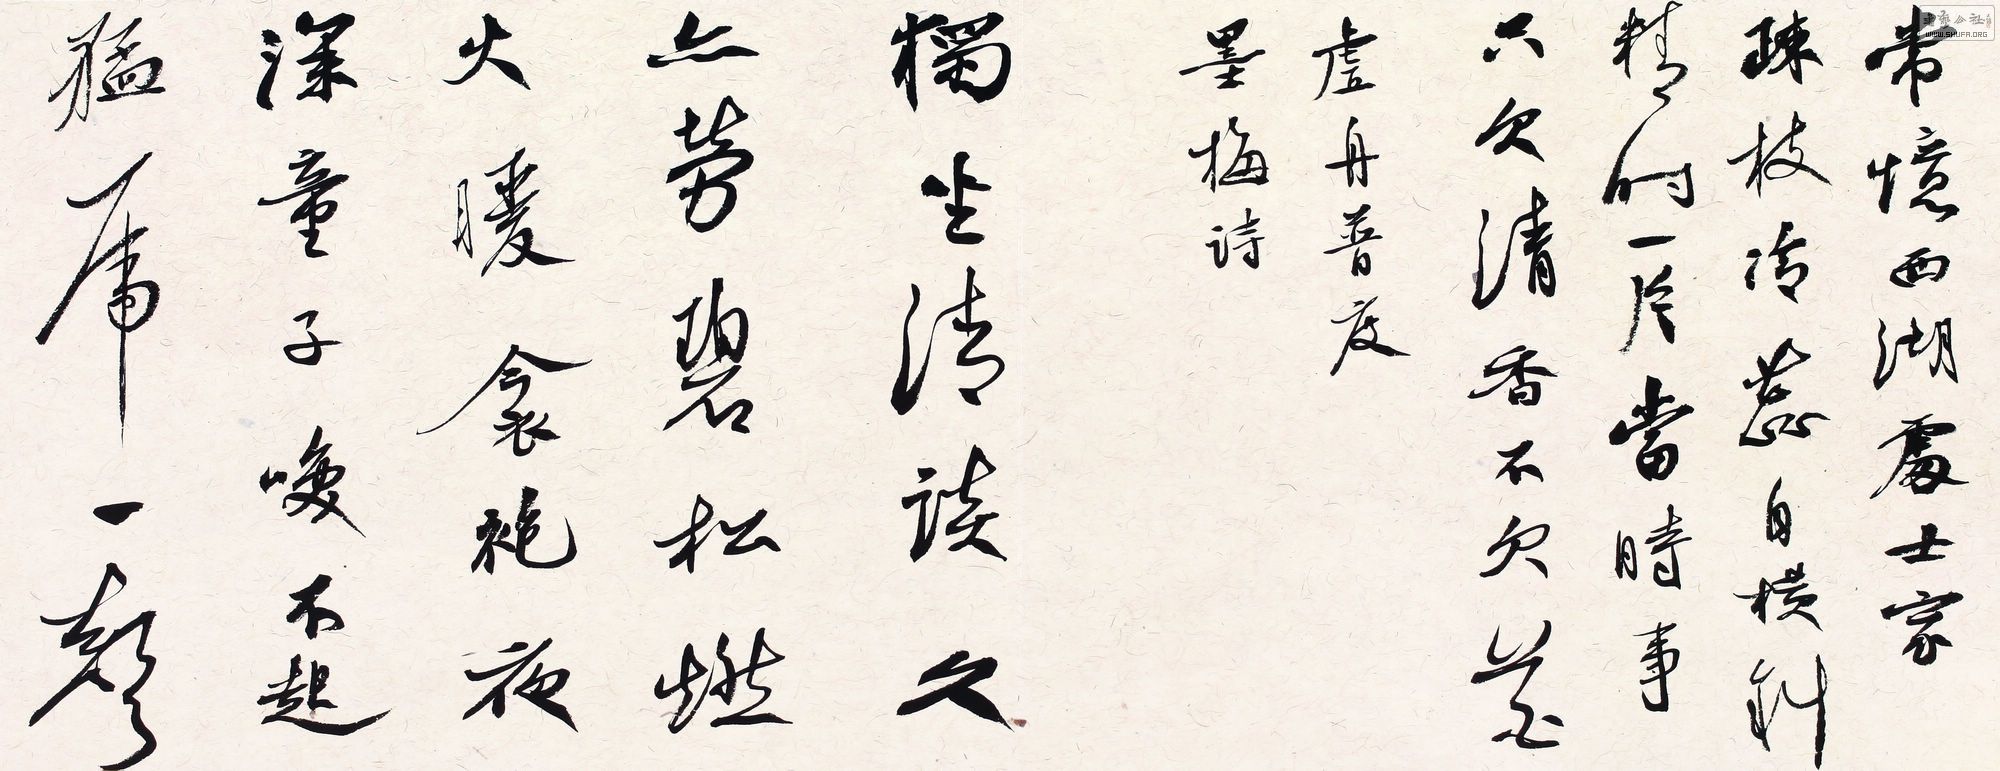 常憶西湖處士家
疎枝冷蕊自横斜
精明一片當時事
只欠清香不欠花
虛舟普度
墨梅詩
獨坐清談久
亦勞碧松燃
火暖衾袍夜
深童子喚不起
猛虎一聲
WWW.SHUFA.ORG